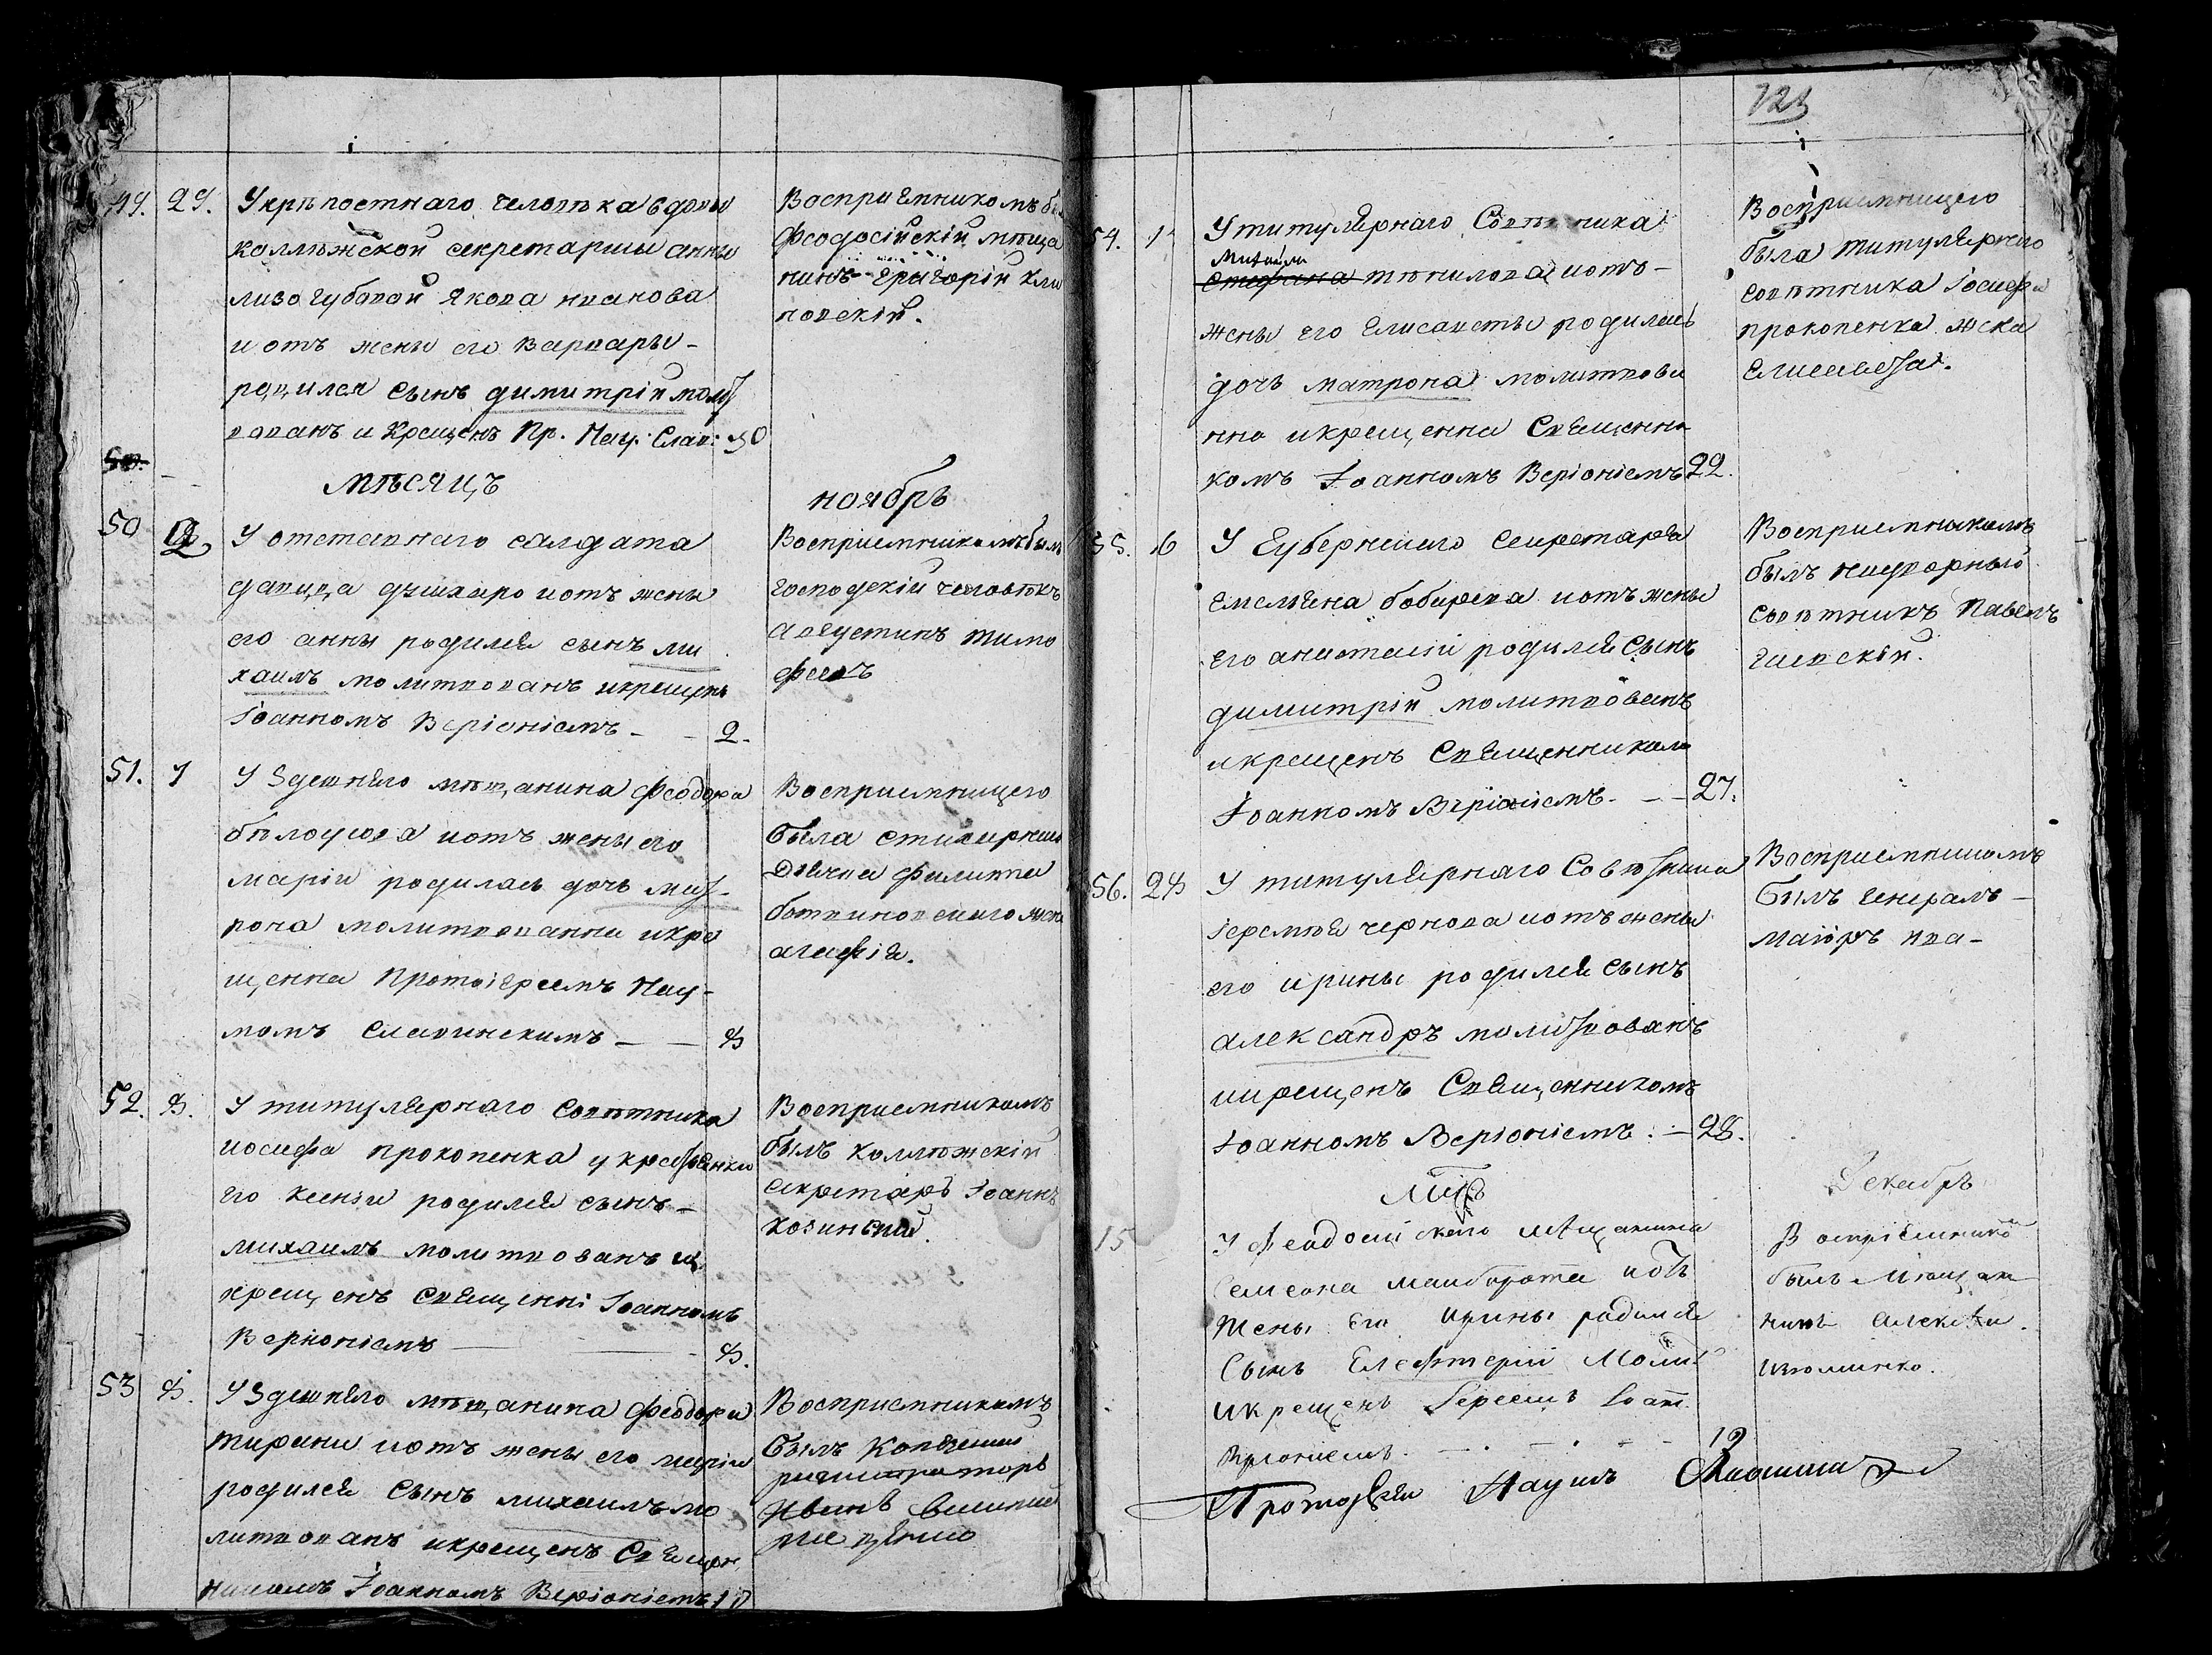 49. 29. Укрѣпостнаго человѣка вдовы
коллѣжской секретарши анны
лизогубовой якова иванова
и отъ жены его варвары -
родился сынъ димитрій молит
вованъ и крещенъ Пр. Нау: Слав: 30
Восприемникомъ бы
Феодосійскій мѣща
нинъ Григорій Кли
новскій.
50.
мѣсяцъ
ноябрь
50 2 У отставнаго салдата
давида
его анны родился сынъ ми
хаилъ молитвованъ икрещенъ
Іоанномъ Веріоніемъ - - 2 -
Восприемникомъ былъ
господскій человѣкъ
августинъ тимо
феевъ
51. 7 У Здешнѣго мѣщанина Феодора
бѣлоусова иотъ жены его
маріи родилась дочь мат
рона молитвованна икре
щенна Протоіереемъ Нау-
момъ Славинскимъ - - 8
Восприемницею
была
Дьячка Филиппа
жена
агафія.
52. 8. У титулярнаго Совѣтника
иосифа прокопенка у крестьянки
его ксеніи родился сынъ -
михаилъ молитвованъ и
крещенъ Священні Іоанномъ
Веріоніемъ - 8.
Восприемникомъ
былъ коллѣжскій
секретарь Іоаннъ
козинскій.
53 8. У Здешнѣго мѣщанина Феодора
иотъ жены его маріи
родился Сынъ михаилъ мо
литвованъ икрещенъ Священ
никомъ Іоанномъ Веріоніемъ 10
Восприемникомъ
былъ
регистраторъ
Иванъ
123
54. 1 У титулярнаго Совѣтника
Михаила
Стефана иотъ -
жены его Елисаветы родилась
дочь матрона молитвова
нна икрещенна Священни
комъ Іоанномъ Веріоніемъ 22.
Восприемницею
была титулярнаго
совѣтника Іосифа
прокопенка жена
Елисавета.
55. 16 У Губернскаго Секретаря
емельяна бобырева иотъ жены
его анастасіи родился Сынъ
димитрій молитвованъ
икрещенъ Священникомъ
Іоанномъ Веріоніемъ - - 27.
Восприемникомъ
былъ надворный
совѣтникъ Павелъ
гаевскій.
56. 28 У титулярнаго Совѣтника
іеремѣя чернова иотъ жены
его ирины родился сынъ
александръ молитвованъ
икрещенъ Священникомъ
Іоанномъ Веріоніемъ: - 28.
Восприемникомъ
былъ генералъ -
маіоръ ива -
Мцъ
Декабрь
15 У Феодосійскаго мѣщанина
Семеона иотъ
жены его Ирины родился
Сынъ Елефтерій Молит
икрещенъ Іереемъ Іоан.
Веріоніемъ. - 19
Воспріемником
былъ Мѣщан
нинъ Алексѣй
Протоіерей Наумъ Славинскій